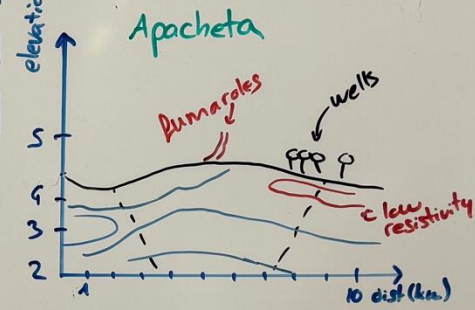 Apacheta
elevation
fumaroles
wells
5
4
low
resistivity
3
2
1
10 dist (km)